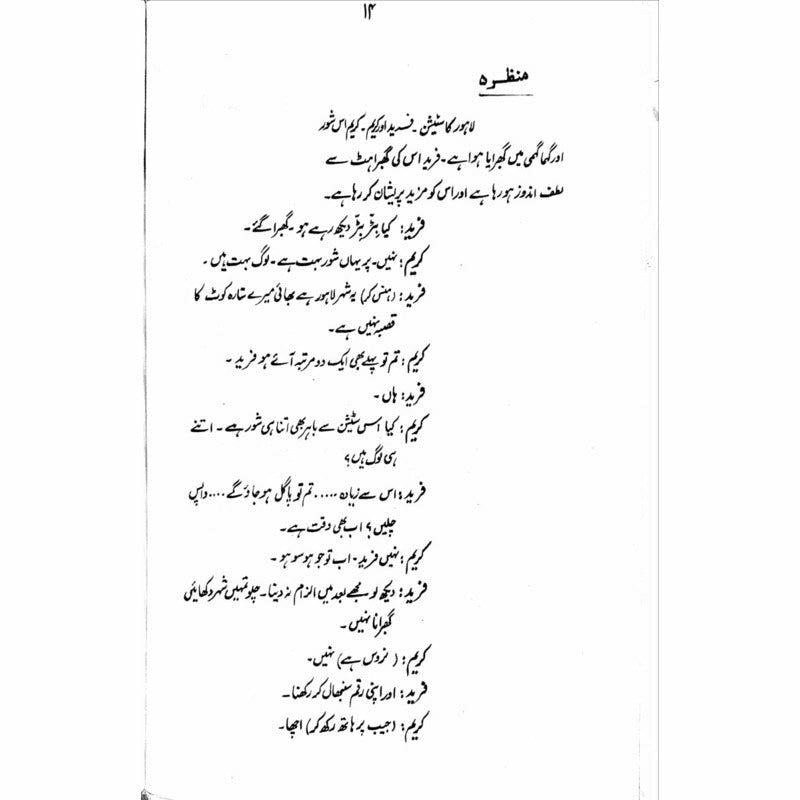 ۱۴
منظر ۵
لاہور کا سٹیشن ۔ فرید اور کریم ۔ کریم اس شور
اور گہما گہمی میں گھبرایا ہوا ہے ۔ فرید اس کی گھبراہٹ سے
لطف اندوز ہو رہا ہے اور اس کو مزید پریشان کر رہا ہے۔
فرید: کیا بِٹّر بِٹّر دیکھ رہے ہو ۔ گھبرا گئے ۔
کریم: نہیں ۔ پر یہاں شور بہت ہے ۔ لوگ بہت ہیں ۔
فرید: (ہنس کر) یہ شہر لاہور ہے بھائی میرے ستارہ کوٹ کا
قصبہ نہیں ہے ۔
کریم: تم تو پہلے بھی ایک دو مرتبہ آئے ہو فرید ۔
فرید: ہاں ۔
کریم: کیا اس سٹیشن سے باہر بھی اتنا ہی شور ہے ۔ اتنے
ہی لوگ ہیں؟
فرید: اس سے زیادہ ..... تم تو پاگل ہو جاؤ گے .... واپس
چلیں؟ اب بھی وقت ہے ۔
کریم: نہیں فرید ۔ اب تو جو ہو سو ہو ۔
فرید: دیکھ لو مجھے بعد میں الزام نہ دینا ۔ چلو تمہیں شہر دکھائیں
گھبرانا نہیں ۔
کریم: (نروس ہے) نہیں ۔
فرید: اور اپنی رقم سنبھال کر رکھنا ۔
کریم: (جیب پر ہاتھ رکھ کر) اچھا ۔